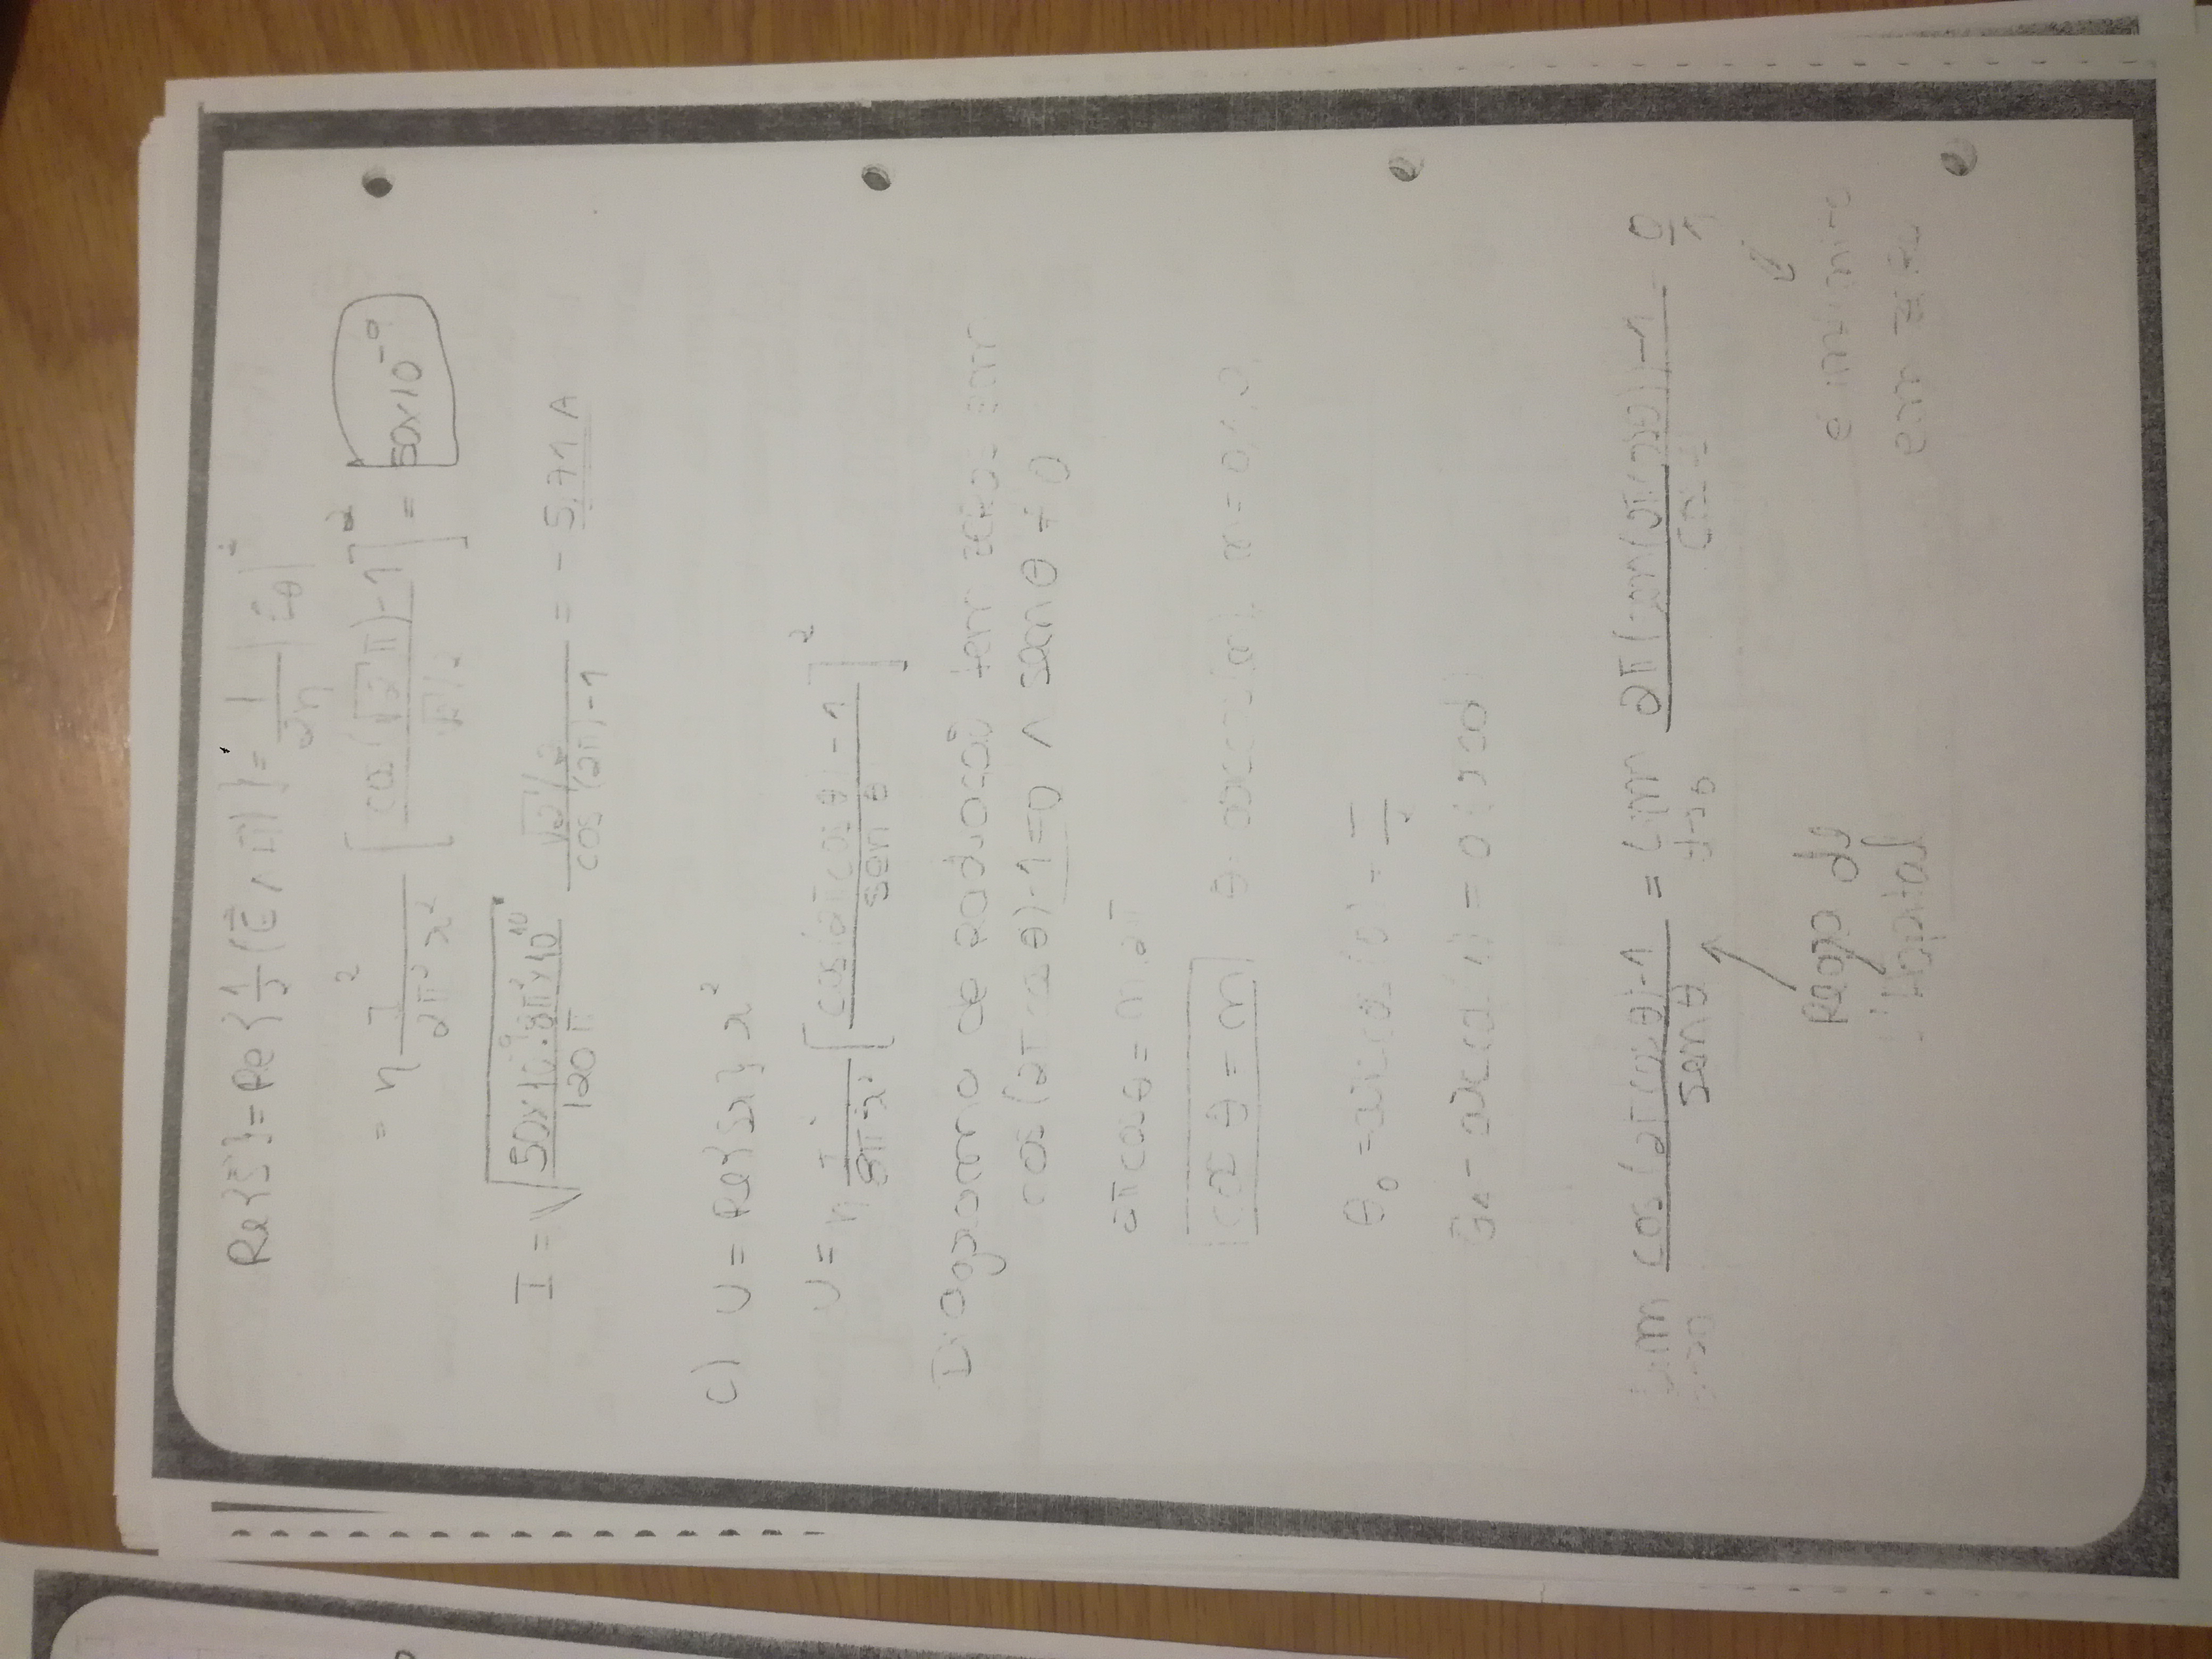 Re{S} = Re{1/2 (E ∧ H)} = 1/2η |Eθ|²
= η I²/2π² r² [cos(√2 π) - 1 / √2/2]² = 50×10⁻⁹
I = √(50×10⁻⁹·8π²×10¹⁰ / 120π) √2/2 / cos(2π)-1 = - 5,71 A
c) U = Re{Sr} r²
U = η I²/8π² r² [cos(2π cos θ) - 1 / sen θ]²
Diagrama de Radiação tem zeros em
cos(2π cos θ) - 1 = 0 ∧ sen θ ≠ 0
2π cos θ = n 2π
cos θ = n θ = arccos(n), n = 0,1,2,
θ₀ = arccos(0) = π/2
θ₁ = arccos(1) = 0 (rad)
lim θ→0 cos(2π cos θ) - 1 / sen θ = lim θ→0 2π(sen(2π cos θ)) - 1 / cos θ = 0/1
Regra de
l'Hopital
em zero